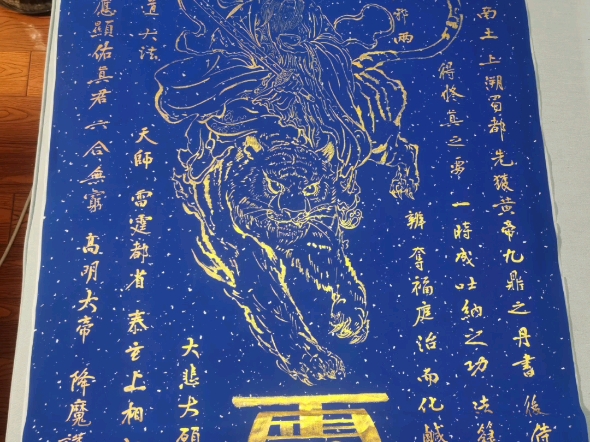 南土 上溯蜀都 先獲黄帝九鼎之丹書 後侍
得修真之要 一時成吐納之功 法籙
邪兩辦 奪福庭治而化鹹
大悲大願
大法 天師 雷霆都省 泰玄上相
應顯佑真君 六合無窮 高明大帝 降魔護